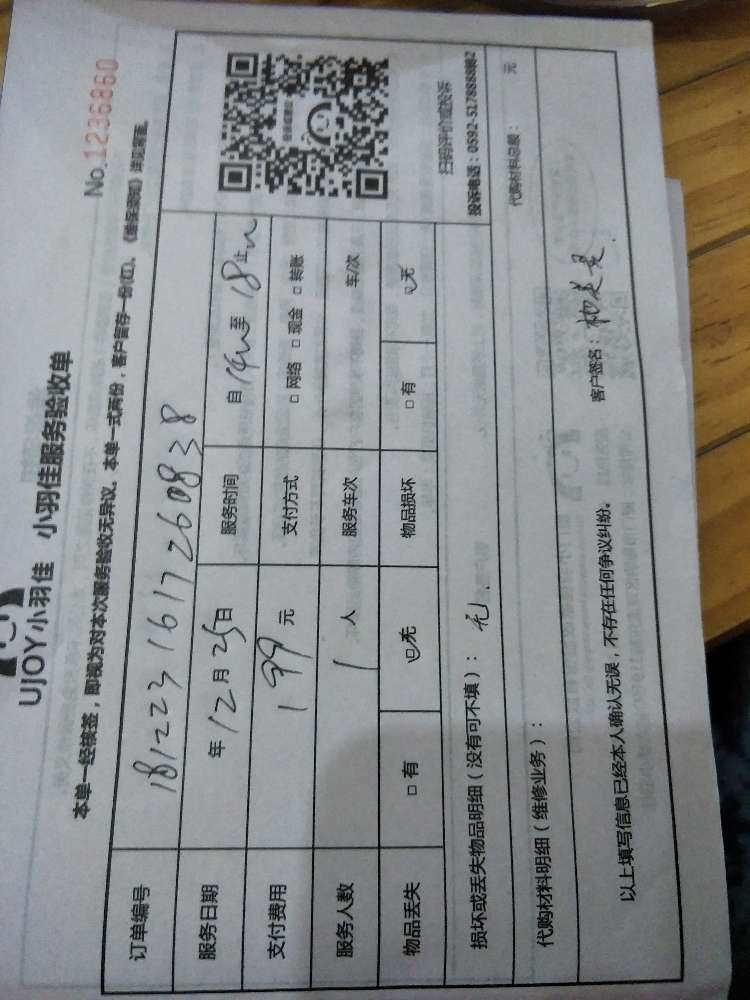 UJOY小羽佳 小羽佳服务验收单
No.1236860
本单一经核签，即视为对本次服务验收无异议。本单一式两份，客户留存一份(红)。
订单编号 181223161726 0838
服务日期 年12月25日 服务时间 自14 至18 止
支付费用 199元 支付方式 □网络 □现金 □转账
服务人数 1人 服务车次 车/次
物品丢失 □有 ☑无 物品损坏 □有 ☑无
扫码评价或投诉
损坏或丢失物品明细（没有可不填）：无
代购材料明细（维修业务）： 代购材料总额： 元
以上填写信息已经本人确认无误，不存在任何争议纠纷。 客户签名：